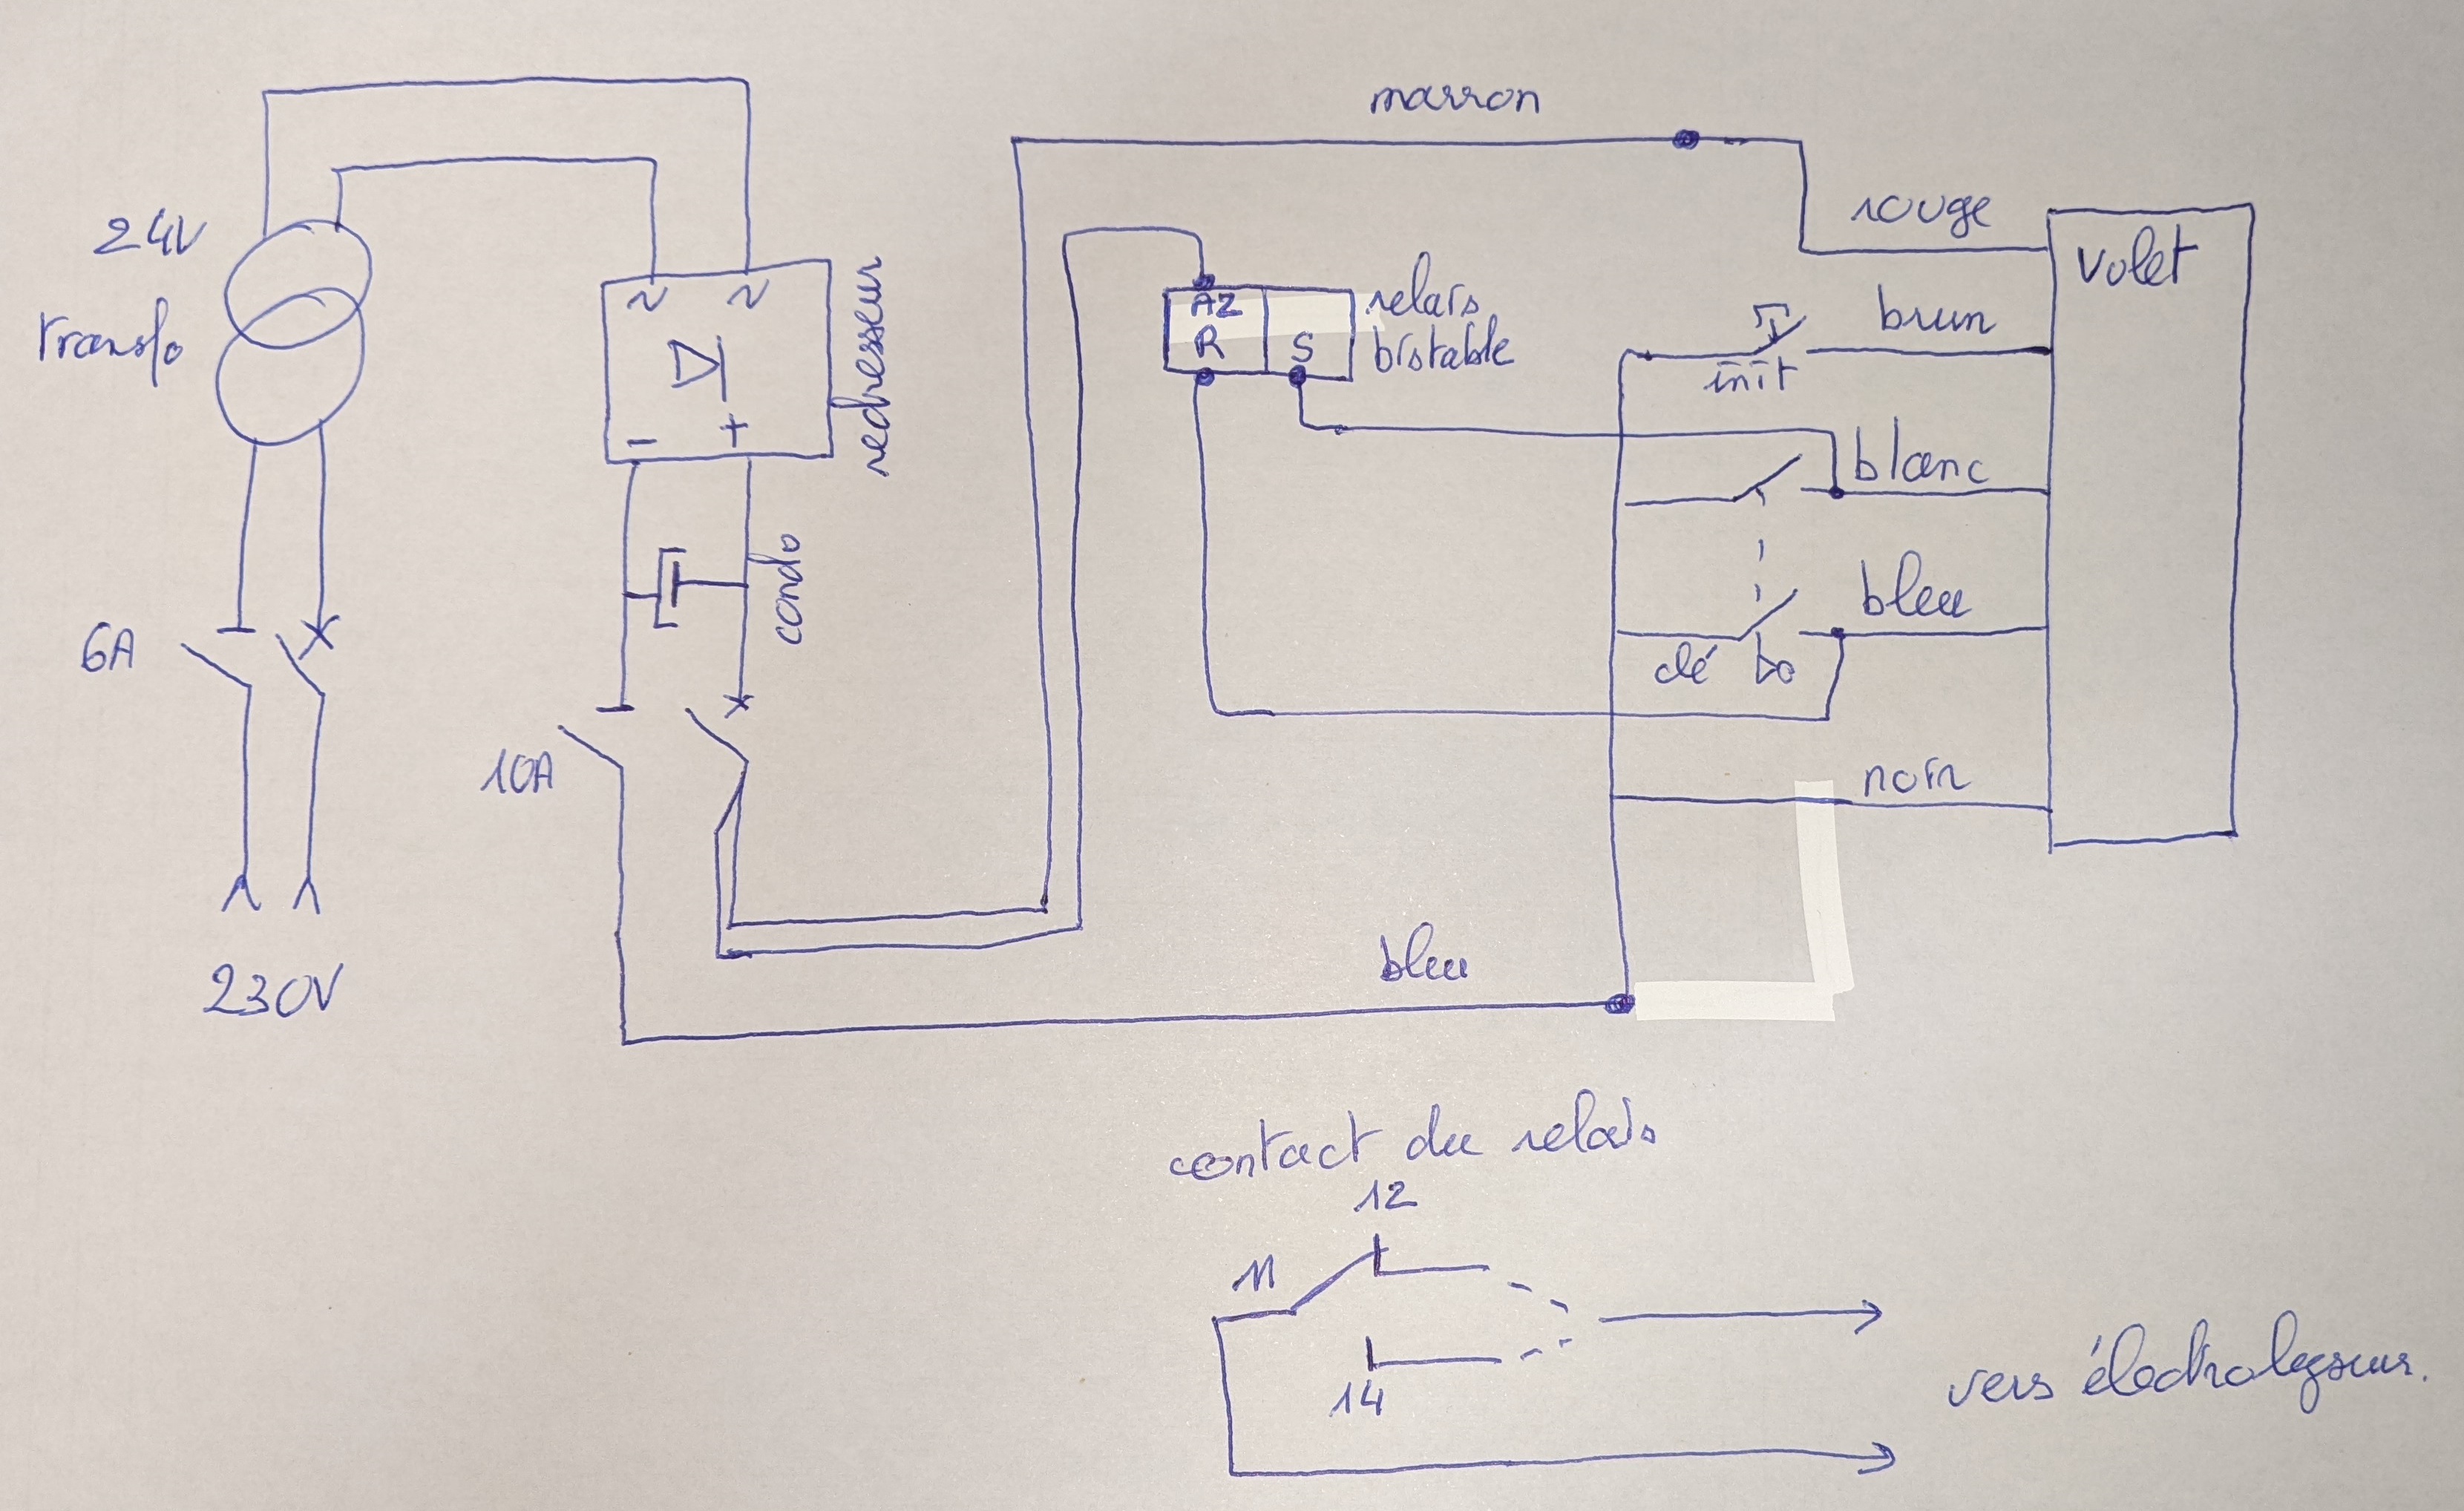 marron
24V
transfo
~ ~
- +
redresseur
condo
6A
230V
10A
A2
R
S
relais
bistable
rouge
volet
brun
init
blanc
bleu
clé
noir
bleu
contact du relais
12
11
14
vers électrolyseur.